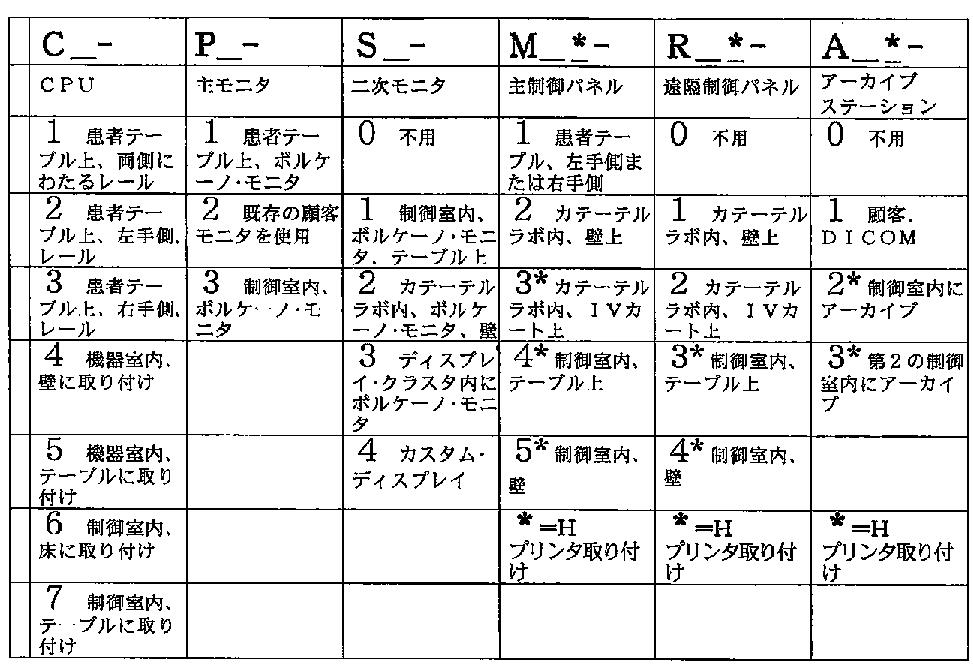 C_- P_- S_- M_*- R_*- A_*-
CPU 主モニタ 二次モニタ 主制御パネル 遠隔制御パネル アーカイブ
ステーション
1 患者テー 1 患者テー 0 不用 1 患者テー 0 不用 0 不用
ブル上、両側に ブル上、ボルケ ブル、左手側ま
わたるレール ーノ・モニタ たは右手側
2 患者テー 2 既存の顧客 1 制御室内、 2 カテーテル 1 カテーテル 1 顧客.
ブル上、左手側、 モニタを使用 ボルケーノ・モニ ラボ内、壁上 ラボ内、壁上 DICOM
レール タ、テーブル上
3 患者テー 3 制御室内、 2 カテーテル 3* カテーテル 2 カテーテル 2* 制御室内に
ブル上、右手側、 ボルケーノ・モ ラボ内、ボルケ ラボ内、IVカ ラボ内、IVカ アーカイブ
レール ニタ ーノ・モニタ、壁 ート上 ート上
4 機器室内、 3 ディスプレ 4* 制御室内、 3* 制御室内、 3* 第2の制御
壁に取り付け イ・クラスタ内に テーブル上 テーブル上 室内にアーカイ
ボルケーノ・モニ ブ
タ
5 機器室内、 4 カスタム・ 5* 制御室内、 4* 制御室内、
テーブルに取り ディスプレイ 壁 壁
付け
6 制御室内、 *=H *=H *=H
床に取り付け プリンタ取り付 プリンタ取り付 プリンタ取り付
け け け
7 制御室内、
テーブルに取り
付け